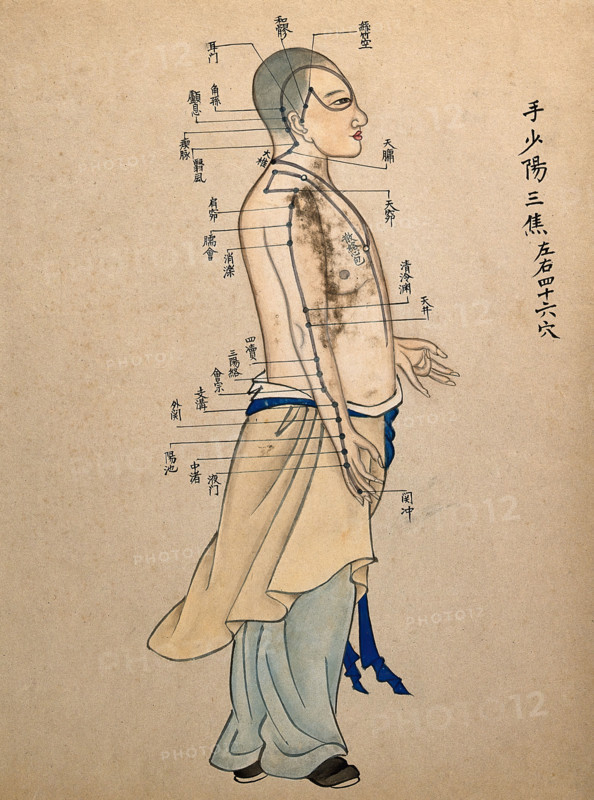 手少陽三焦左右四十六穴
和髎
絲竹空
耳门
角孫
顱息
瘈脉
翳風
大椎
天牖
肩窌
天窌
臑會
消濼
清冷渊
天井
四瀆
三陽絡
會宗
支溝
外関
陽池
中渚
液门
関冲
PHOTO12